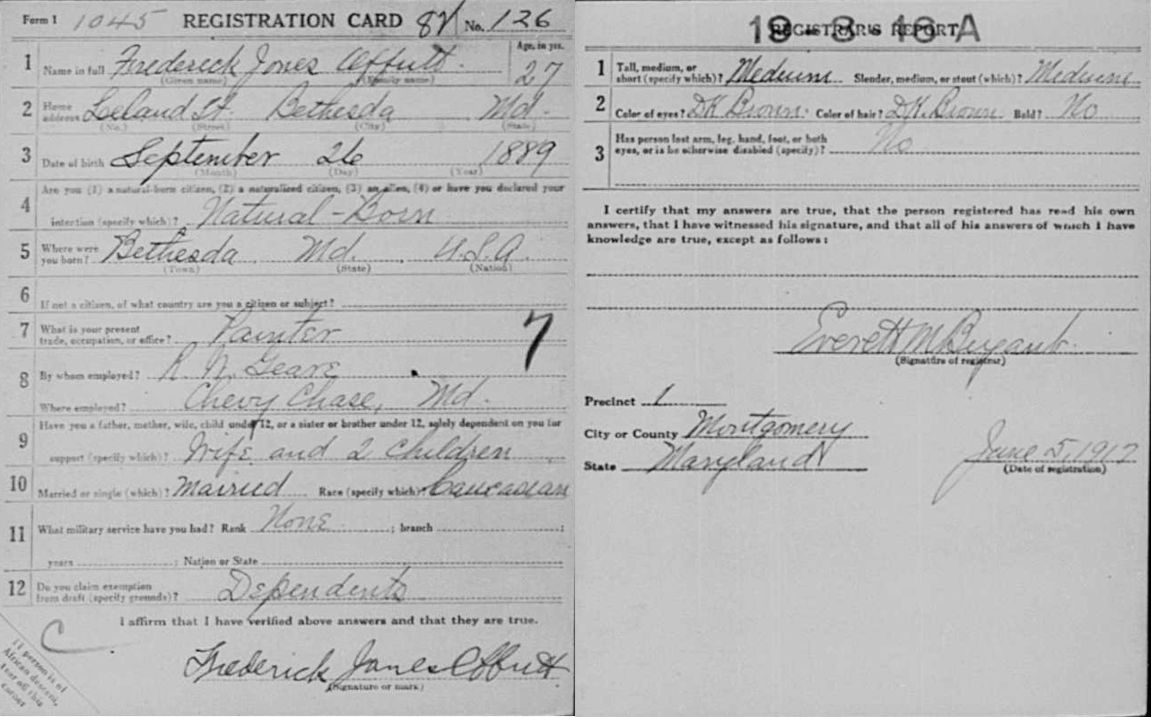 Form 1 1045 REGISTRATION CARD 82 No. 126
Age, in yrs.
1 Name in full Frederick Jones Offutt 27
(Given name) (Family name)
2 Home address Leland St. Bethesda Md.
(No.) (Street) (City) (State)
3 Date of birth September 26 1889
(Month) (Day) (Year)
Are you (1) a natural-born citizen, (2) a naturalized citizen, (3) an alien, (4) or have you declared your
4 intention (specify which)? Natural-Born
5 Where were you born? Bethesda Md. U.S.A.
(Town) (State) (Nation)
6 If not a citizen, of what country are you a citizen or subject?
7 What is your present trade, occupation, or office? Painter 7
8 By whom employed? R N. Geare
Where employed? Chevy Chase, Md.
Have you a father, mother, wife, child under 12, or a sister or brother under 12, solely dependent on you for
9 support (specify which)? Wife and 2 Children
10 Married or single (which)? Married Race (specify which)? Caucasian
11 What military service have you had? Rank None ; branch ;
years ; Nation or State
12 Do you claim exemption from draft (specify grounds)? Dependents
I affirm that I have verified above answers and that they are true.
C
Frederick Jones Offutt
(Signature or mark)
If person is of
African descent,
tear off this
corner
19-3-16 A
REGISTRAR'S REPORT
1 Tall, medium, or short (specify which)? Medium Slender, medium, or stout (which)? Medium
2 Color of eyes? DK Brown Color of hair? DK. Brown Bald? No
3 Has person lost arm, leg, hand, foot, or both eyes, or is he otherwise disabled (specify)? No
I certify that my answers are true, that the person registered has read his own
answers, that I have witnessed his signature, and that all of his answers of which I have
knowledge are true, except as follows:
Everett M Bryant
(Signature of registrar)
Precinct 1
City or County Montgomery
State Maryland June 5, 1917
(Date of registration)